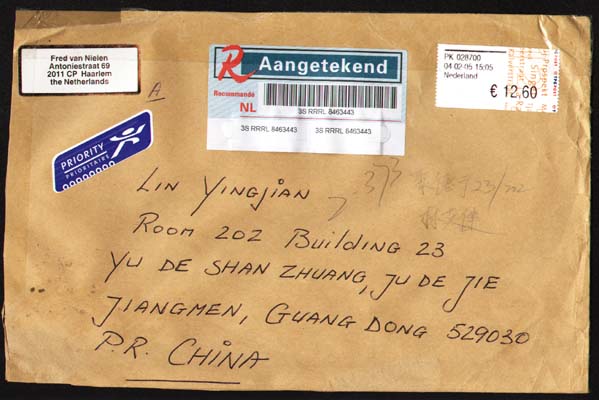 Fred van Nielen
Antoniestraat 69
2011 CP Haarlem
the Netherlands
R Aangetekend
Recommandé
NL
3S RRRL 8463443
3S RRRL 8463443 3S RRRL 8463443
PK 028700
04-02-05 15:05
Nederland
€ 12,60
A
PRIORITY
PRIORITAIRE
LIN YINGJIAN
ROOM 202 BUILDING 23
YU DE SHAN ZHUANG, JU DE JIE
JIANGMEN, GUANG DONG 529030
P.R. CHINA
23/202